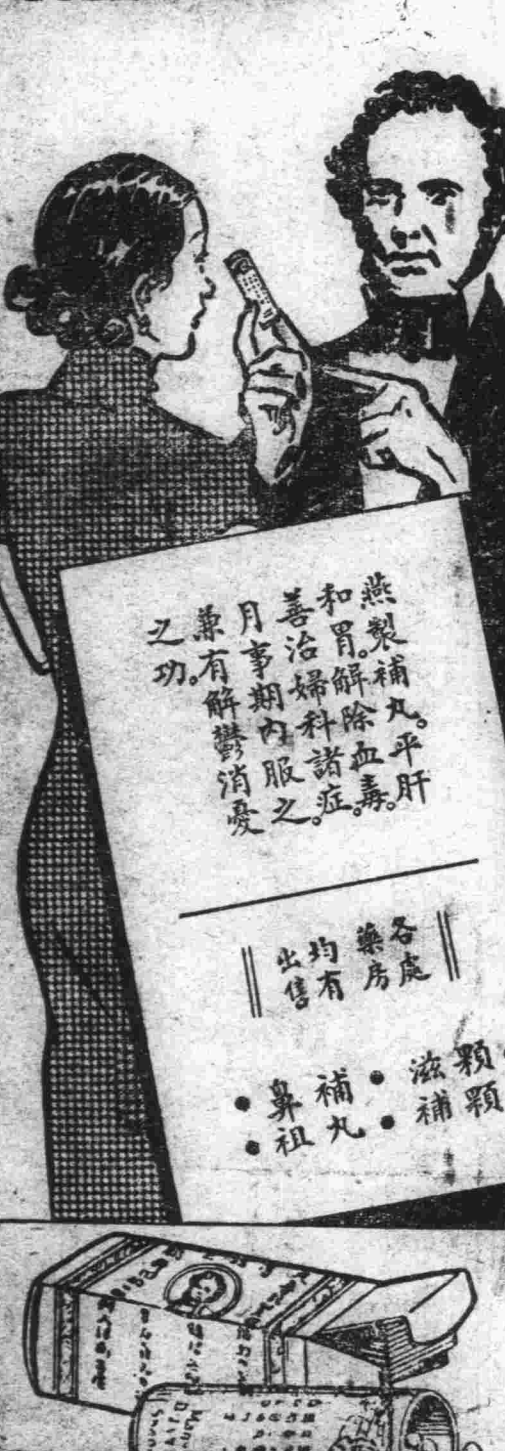 燕製補丸。平肝
和胃。解除血毒。
善治婦科諸症。
月事期內服之
兼有解鬱消憂
之功。
各處
藥房
均有
出售
顆顆
滋補
補丸
鼻祖